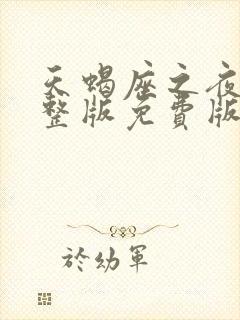 天蝎座之夜
整版免费版
於幼军